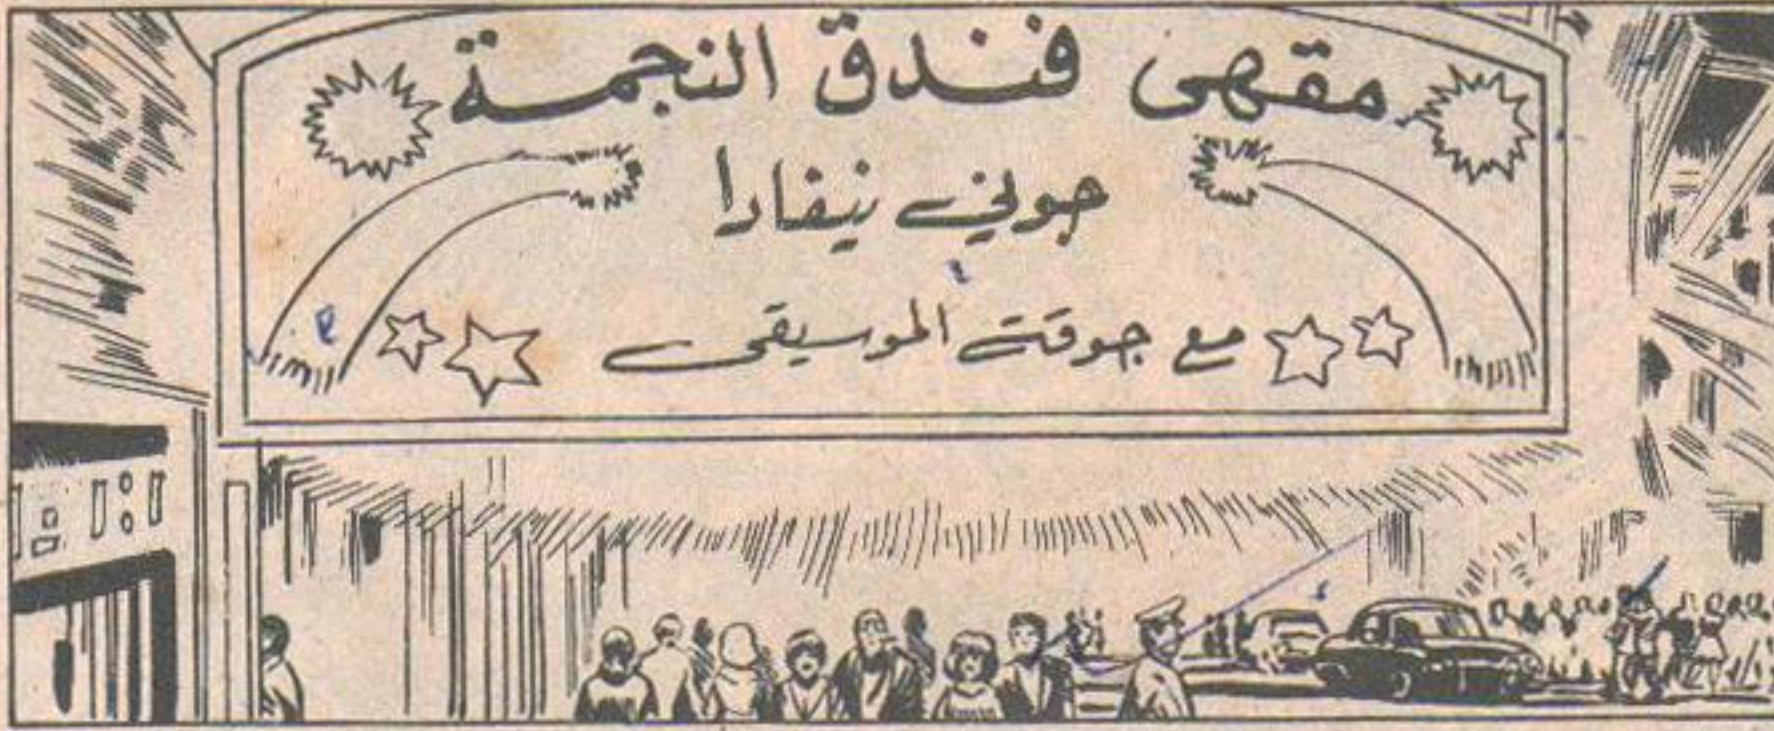 مقهى فندق النجمة
جوني نيفادا
مع جوقته الموسيقى